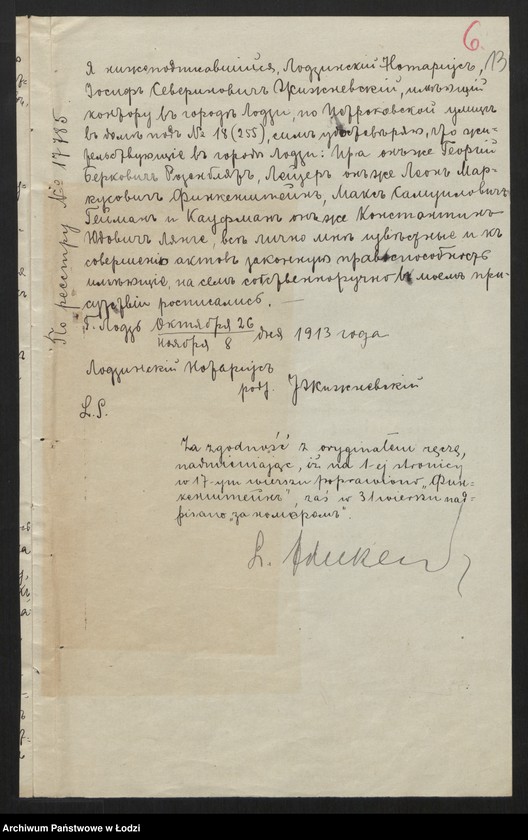 6.
13
Я нижеподписавшійся, Лодзинскій Нотаріусъ,
Іосифъ Севериновичъ Жижневскій, имѣющій
контору въ городѣ Лодзи, по Петроковской улицѣ
въ домѣ подъ № 18 (255), симъ удостовѣряю, что жи-
тельствующіе въ городѣ Лодзи: Ира онъ же Георгій
Берковичъ Розенблятъ, Лейзеръ онъ же Леонъ Мар-
кусовичъ Финкенштейнъ, Максъ Самуиловичъ
Гейманъ и Кауфманъ онъ же Константинъ
Юдовичъ Лянге, всѣ лично мнѣ извѣстные и къ
совершенію актовъ законную правоспособность
имѣющіе, на семъ собственноручно въ моемъ при-
сутствіи росписались. —
Г. Лодзь Октября 26 / Ноября 8 дня 1913 года
Лодзинскій Нотаріусъ
подп. Жижневскій
L.S.
По реестру № 17785
Za zgodność z oryginałem ręczę,
nadmieniając, iż na 1-ej stronicy
w 17-ym wierszu poprawiono „Фин-
кенштейнъ", zaś w 31 wierszu nad-
pisano „за номеромъ".
Archiwum Państwowe w Łodzi